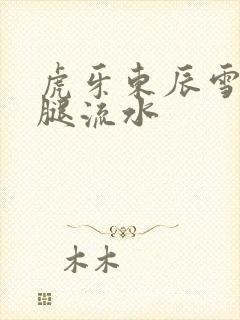 虎牙东辰雪
腿流水
木木